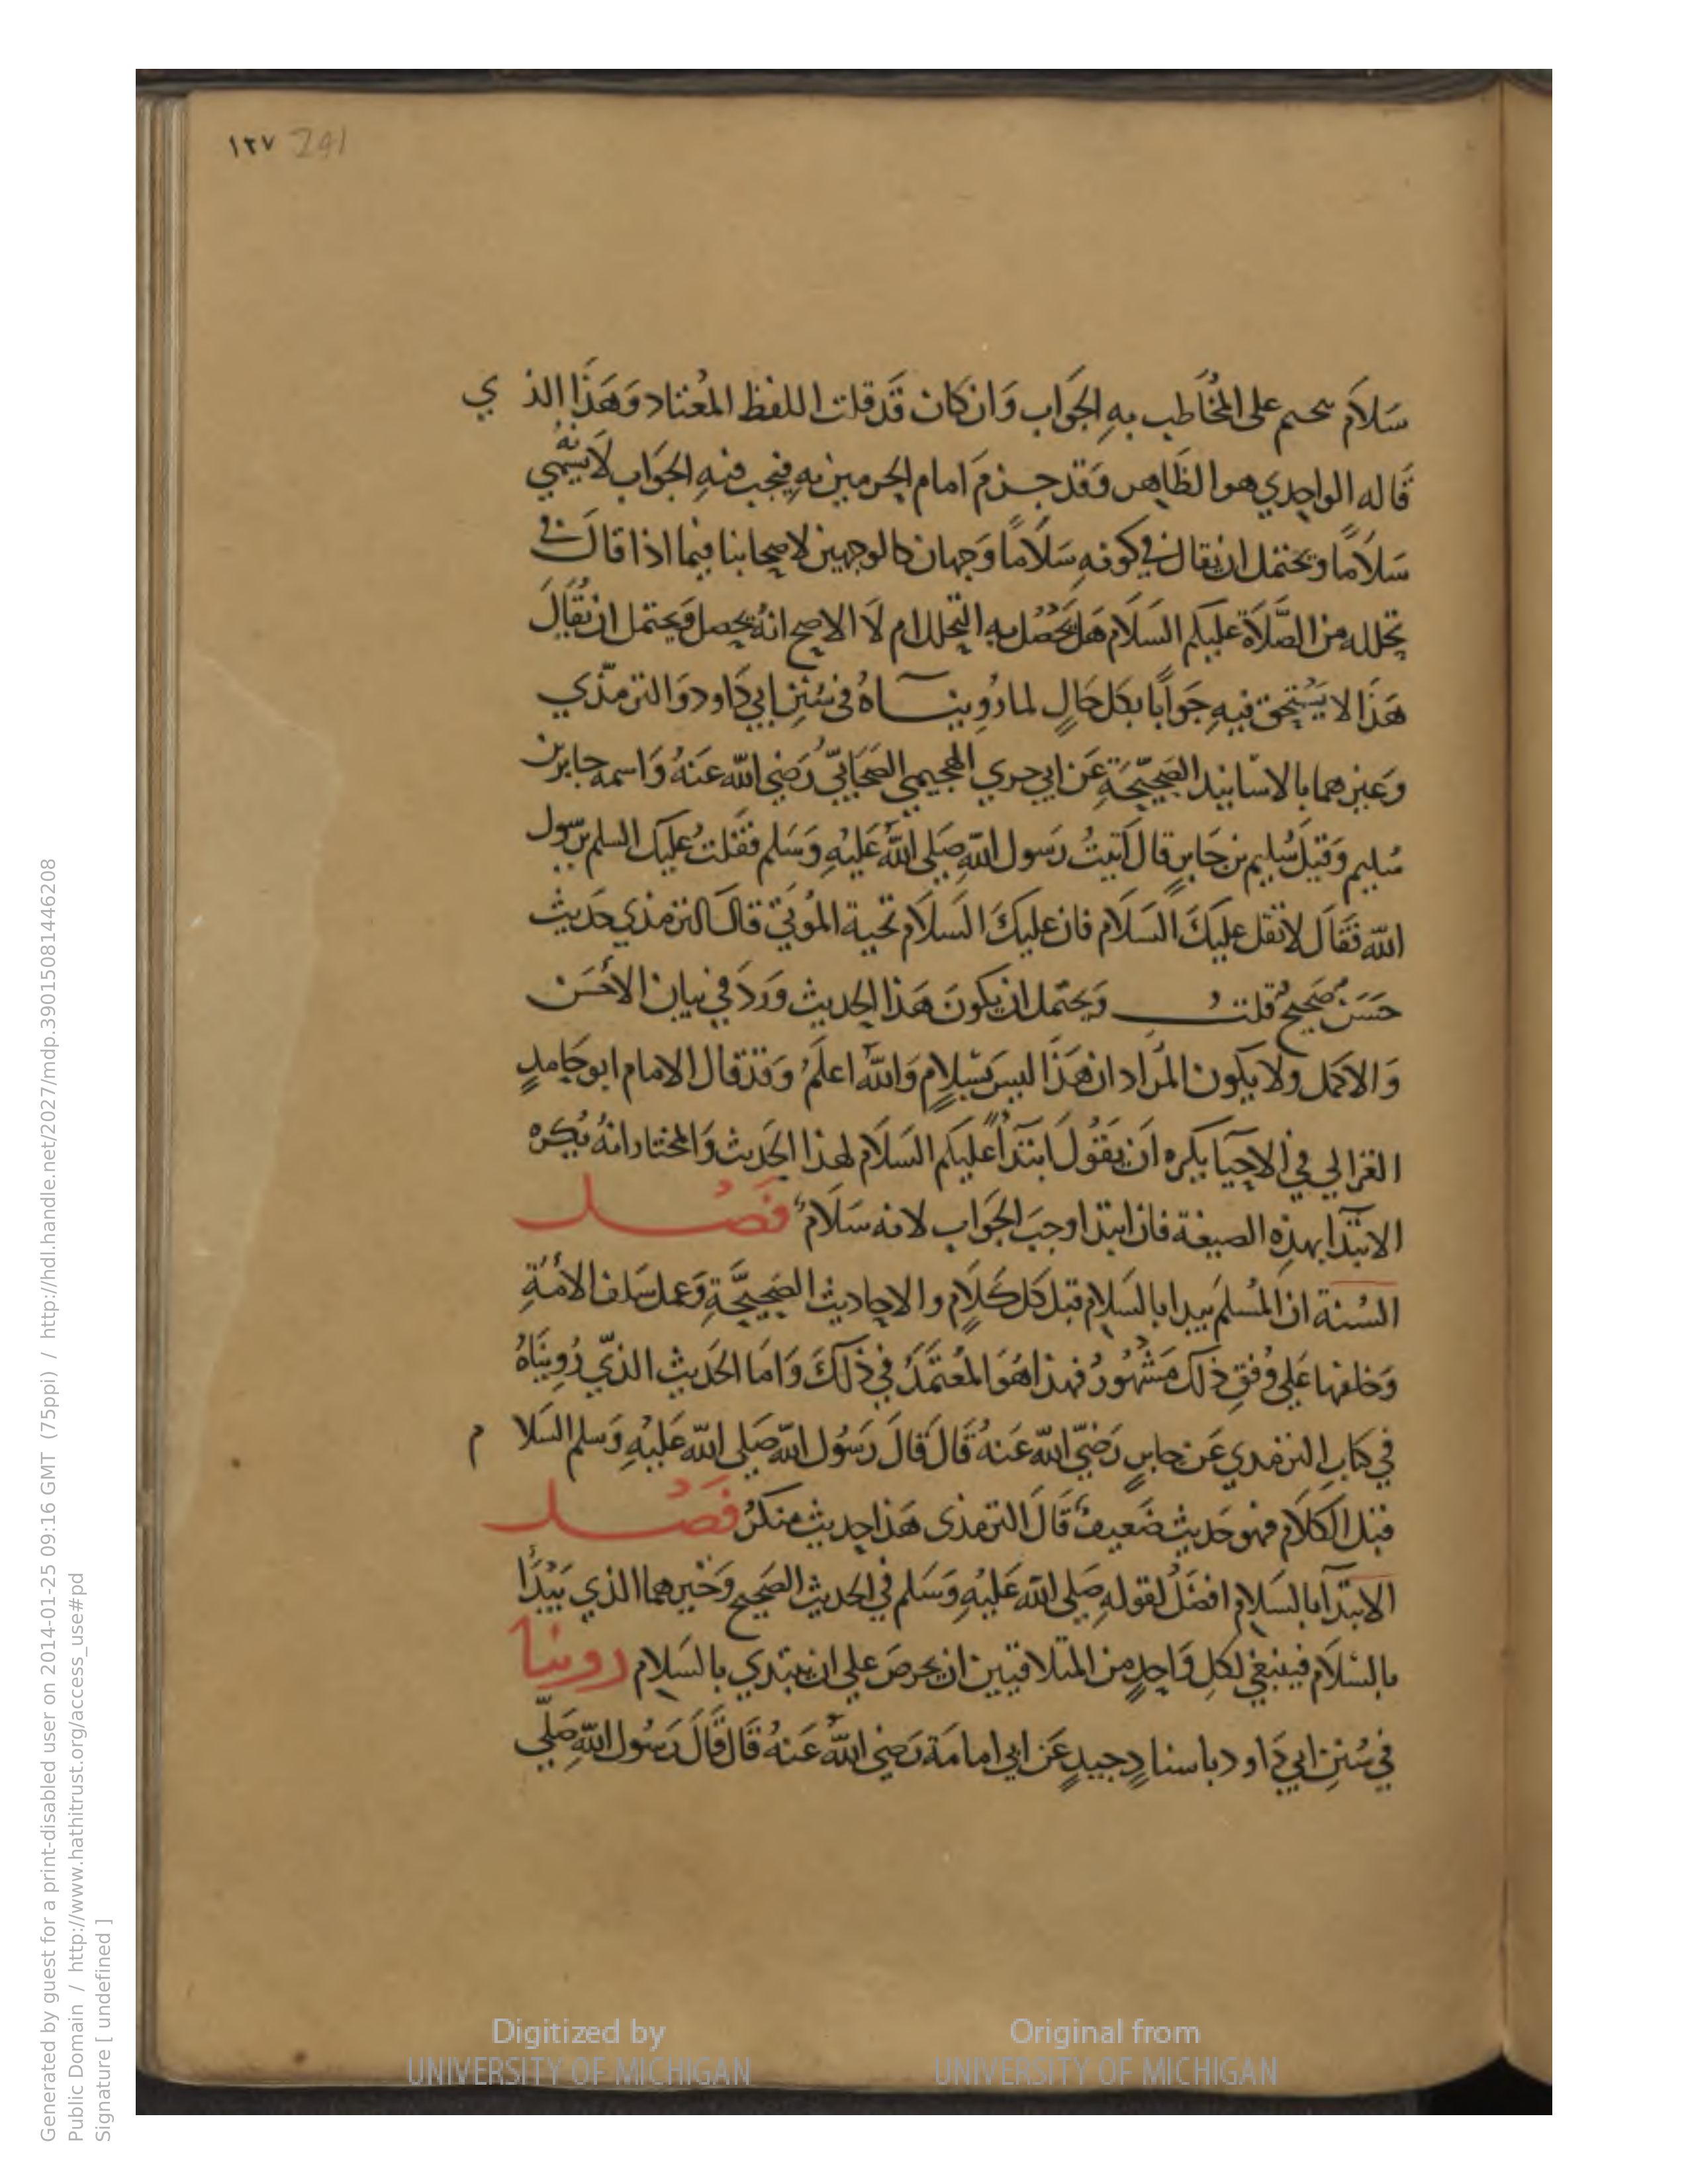 ١٢٧ 241
سَلاَم يتحتم على المُخَاطب بهِ الجَوَاب وَان كَان قَد قلت اللفظ المُعتاد وَهَذَا الذي
قَاله الواحِدي هو الظَاهِر وَقَد جزمَ امام الحرمين بهِ فيجب فيهِ الجَوَاب لاَنهُ يسُمّي
سَلاَمًا ويحتمل ان يقال في كونهِ سَلاَمًا وَجهان كالوجهين لاصحابنا فيما اذا قالَ في
تحلله من الصَّلاَة عليكم السَلاَم هَل يَحْصُل بهِ التحلل ام لاَ الاصح انهُ يحصل وَيحتمل ان يُقَالَ
هَذَا لا يَسْتحق فيهِ جَوَابًا بكل حَالٍ لما رُوينَاهُ فى سُنَنِ ابي دَاود وَالترمذّي
وَغيرهما بالاسَانيد الصَحِيْحَةِ عَن ابي جري الهجيمي الصَحَابيّ رَضي الله عَنهُ وَاسمه جابر بن
سُليم وَقيل سُليم بن جَابرٍ قال اَتيتُ رَسول اللهِ صَلى اللهُ عَليْهِ وَسَلم فَقلتُ عليك السلم يرسول
الله فَقَال لا تقل عليكَ السَلاَم فان عليكَ السَلاَم تحية المُوتيَ قالَ الترمذي حَديث
حَسَنٌ صَحيحٌ قلتُ وَيحتمل ان يكونَ هَذا الحديث وَردَ في بيان الأَحْسَن
وَالاكمل ولا يكون المرُاد ان هَذَا ليسَ بسَلامٍ وَاللهُ اعلَمُ وَقد قال الامام ابو حَامدٍ
الغزالي في الاحِيَا يكره اَن يَقُولَ ابتدَاًَ عليكم السَلاَم لهذا الحَديث وَالمختار انهُ يُكره
الابتَدا بهذِه الصيغة فان ابتدا وجبَ الجَوَاب لانه سَلاَمٌ فَصْل
السُنة ان المُسلمَ يبدا بالسَلام قبل كل كَلَامٍ والاحاديث الصَحِيْحَةِ وَعمل سَلف الأمَّةِ
وَخلفها عَلي وُفقِ ذلك مَشهُورٌ فهذا هُوَ المُعتَمَدُ في ذلكَ وَامَا الحَديث الذّي رُوينَاهُ
في كتابِ الترمدي عَن جابرٍ رَضيّ الله عَنهُ قَالَ قَالَ رَسُول الله صَلى الله عَليْهِ وَسلم السَلام
قبل الكلاَم فهو حَديث ضَعيفٌ قَالَ الترمذى هَذا حديث منكرُ فَصْل
الابتدَا بالسَلام افضَلُ لقولهِ صَلى الله عَليْهِ وَسَلم في الحديث الصَحيح وَخَيرهما الذي يَبْدَأ
بالسَلاَم فينبغي لكلِ وَاحدٍ من المتلاقيين ان يحرصَ علي ان يبتدي بالسَلام روينا
في سُننِ ابي دَاود باسنادٍ جيدٍ عَن ابي امامَة رَضي اللهُ عَنهُ قَال قَالَ رَسُول اللهِ صَلّي
Generated by guest for a print-disabled user on 2014-01-25 09:16 GMT (75ppi) / http://hdl.handle.net/2027/mdp.39015081446208
Public Domain / http://www.hathitrust.org/access_use#pd
Signature [ undefined ]
Digitized by
UNIVERSITY OF MICHIGAN
Original from
UNIVERSITY OF MICHIGAN